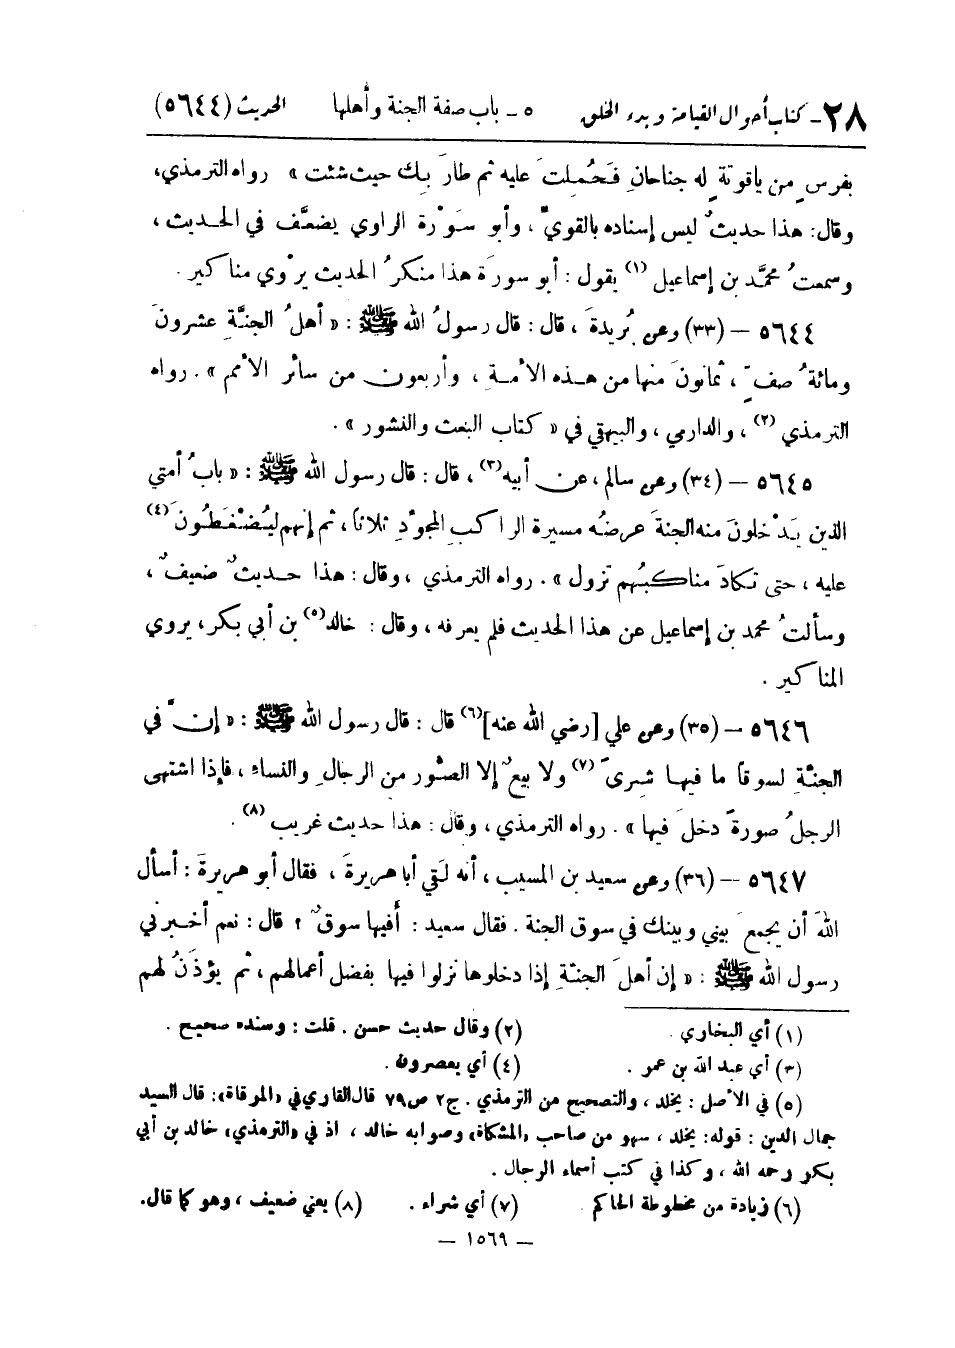 ٢٨ - كتاب أحوال القيامة وبدء الخلق ٥ - باب صفة الجنة وأهلها الحديث (٥٦٤٤)
بفرسٍ من ياقوتةٍ له جناحانِ فَحُمِلتَ عليه ثم طارَ بِكَ حيث شئت » رواه الترمذي،
وقال: هذا حديثٌ ليس إسناده بالقويِّ ، وأبو سَوْرة الراوي يضعَّف في الحديث ،
وسمعتُ محمَّد بن إسماعيل (١) يقول : أبو سورَة هذا منكرُ الحديث يرْوي مناكير .
٥٦٤٤ – (٣٣) وعن بُريدةَ ، قال : قال رسولُ الله ﷺ : « أهلُ الجنَّةِ عشرونَ
ومائةُ صفٍّ ، ثمانونَ منها من هذه الأمة ، وأربعون من سائر الأمم » . رواه
الترمذي (٢) ، والدارمي ، والبيهقي في « كتاب البعث والنشور » .
٥٦٤٥ – (٣٤) وعن سالم ، عن أبيه (٣) ، قال : قال رسول الله ﷺ : « بابُ أمتي
الذين يَدْخلونَ منه الجنةَ عرضُه مسيرة الراكبِ المجوِّدِ ثلاثاً ، ثم إنهم ليُضْغَطُونَ (٤)
عليه ، حتى تكادَ مناكبُهم تزول » . رواه الترمذي ، وقال : هذا حديثٌ ضعيفٌ ،
وسألتُ محمد بن إسماعيل عن هذا الحديث فلم يعرفه ، وقال : خالد (٥) بن أبي بكر ، يروي
المناكير .
٥٦٤٦ – (٣٥) وعن علي [رضي الله عنه] (٦) قال : قال رسول الله ﷺ : « إنَّ في
الجنَّةِ لسوقاً ما فيها شِرىً (٧) ولا بيعٌ إلا الصُّور من الرجالِ والنساء ، فإذا اشتهى
الرجلُ صورةً دخلَ فيها » . رواه الترمذي ، وقال : هذا حديث غريب (٨) .
٥٦٤٧ – (٣٦) وعن سعيد بن المسيب ، أنه لَقيَ أبا هريرةَ ، فقال أبو هريرةَ : أسأل
اللهَ أن يجمعَ بيني وبينك في سوق الجنة . فقال سعيد : أفيها سوقٌ ؟ قال : نعم أخبرني
رسول الله ﷺ : « إن أهلَ الجنَّةِ إذا دخلوها نزلوا فيها بفضل أعمالهم ، ثم يؤذَنُ لهم
(١) أي البخاري . (٢) وقال حديث حسن . قلت : وسنده صحيح .
(٣) أي عبد الله بن عمر . (٤) أي يعصرون .
(٥) في الأصل : يخلد ، والتصحيح من الترمذي . ج٢ ص٧٩ قال القاري في «المرقاة»: قال السيد
جمال الدين : قوله: يخلد ، سهو من صاحب «المشكاة» وصوابه خالد ، اذ في «الترمذي» خالد بن أبي
بكر رحمه الله ، وكذا في كتب أسماء الرجال .
(٦) زيادة من مخطوطة الحاكم . (٧) أي شراء . (٨) يعني ضعيف ، وهو كما قال.
– ١٥٦٩ –